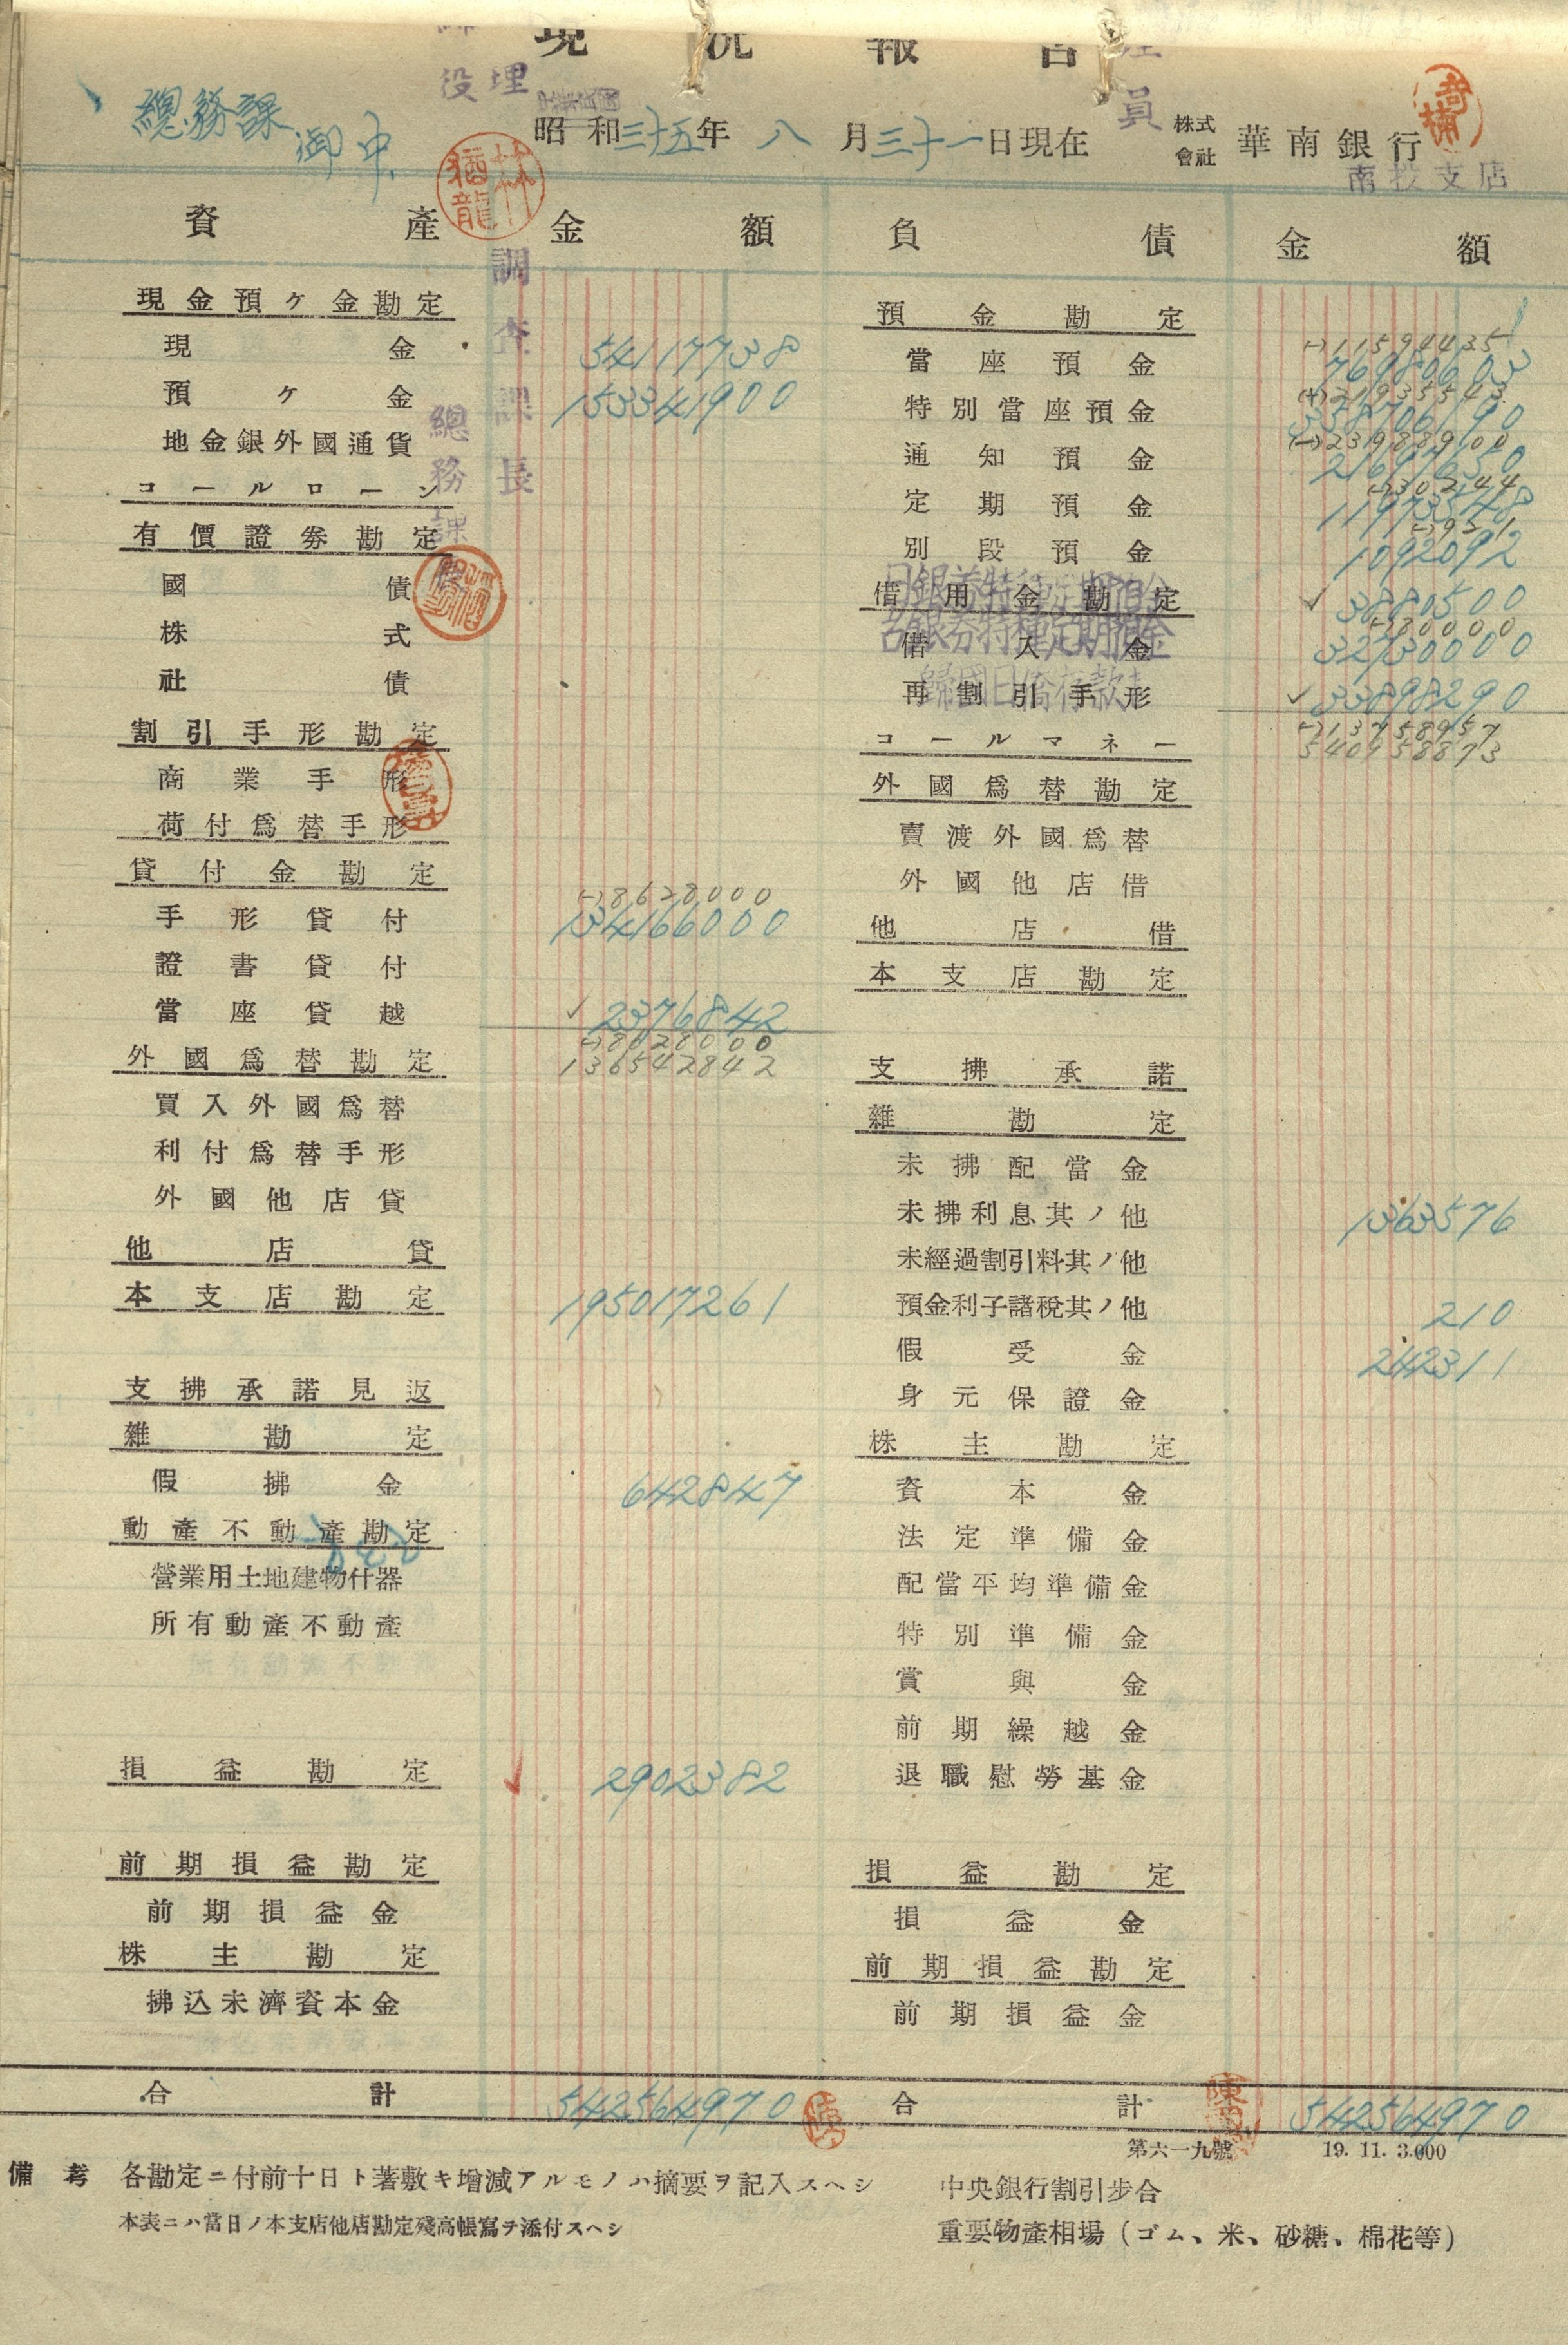 現況報告
總務課 御中
中華民國
昭和三十五年 八月三十一日現在
株式會社 華南銀行
南投支店
資產 金額 負債 金額
調查課長
總務課
林猶龍
現金預ケ金勘定
現金 54117738
預ケ金 153341900
地金銀外國通貨
コールローン
有價證券勘定
國債
株式
社債
割引手形勘定
商業手形
荷付爲替手形
貸付金勘定
(-)8628000
手形貸付 134166000
證書貸付
當座貸越 ✓2376842
(-)8628000
136542842
外國爲替勘定
買入外國爲替
利付爲替手形
外國他店貸
他店貸
本支店勘定 195017261
支拂承諾見返
雜勘定
假拂金 642847
動產不動產勘定
營業用土地建物什器
所有動產不動產
損益勘定 2902382
前期損益勘定
前期損益金
株主勘定
拂込未濟資本金
合計 542564970
預金勘定
(-)11594435
當座預金 76980603
(+)219355543
特別當座預金 358706190
(-)231988900
通知預金 21697650
(-)30244
定期預金 11973548
(-)921
別段預金 1092092
借用金勘定 ✓3880500
日銀券特種定期預金
台銀券特種定期預金
(-)80000
借入金 32730000
歸國日僑存款
再割引手形 ✓33898290
(-)13758957
540958873
コールマネー
外國爲替勘定
賣渡外國爲替
外國他店借
他店借
本支店勘定
支拂承諾
雜勘定
未拂配當金
未拂利息其ノ他 1363576
未經過割引料其ノ他
預金利子諸稅其ノ他 210
假受金 242311
身元保證金
株主勘定
資本金
法定準備金
配當平均準備金
特別準備金
賞與金
前期繰越金
退職慰勞基金
損益勘定
損益金
前期損益勘定
前期損益金
合計 542564970
第六一九號 19. 11. 3.000
備考 各勘定ニ付前十日ト著敷キ增減アルモノハ摘要ヲ記入スヘシ
本表ニハ當日ノ本支店他店勘定殘高帳寫ヲ添付スヘシ
中央銀行割引步合
重要物產相場(ゴム、米、砂糖、棉花等)